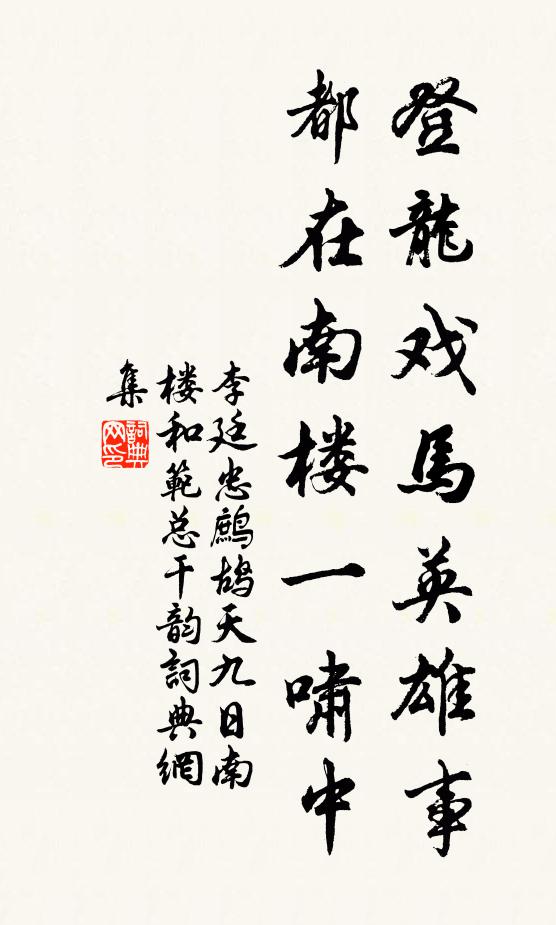 登龍戏馬英雄事
都在南楼一啸中
李廷忠鷓鸪天九日南
楼和範总干韵詞典網
集
詞典网印